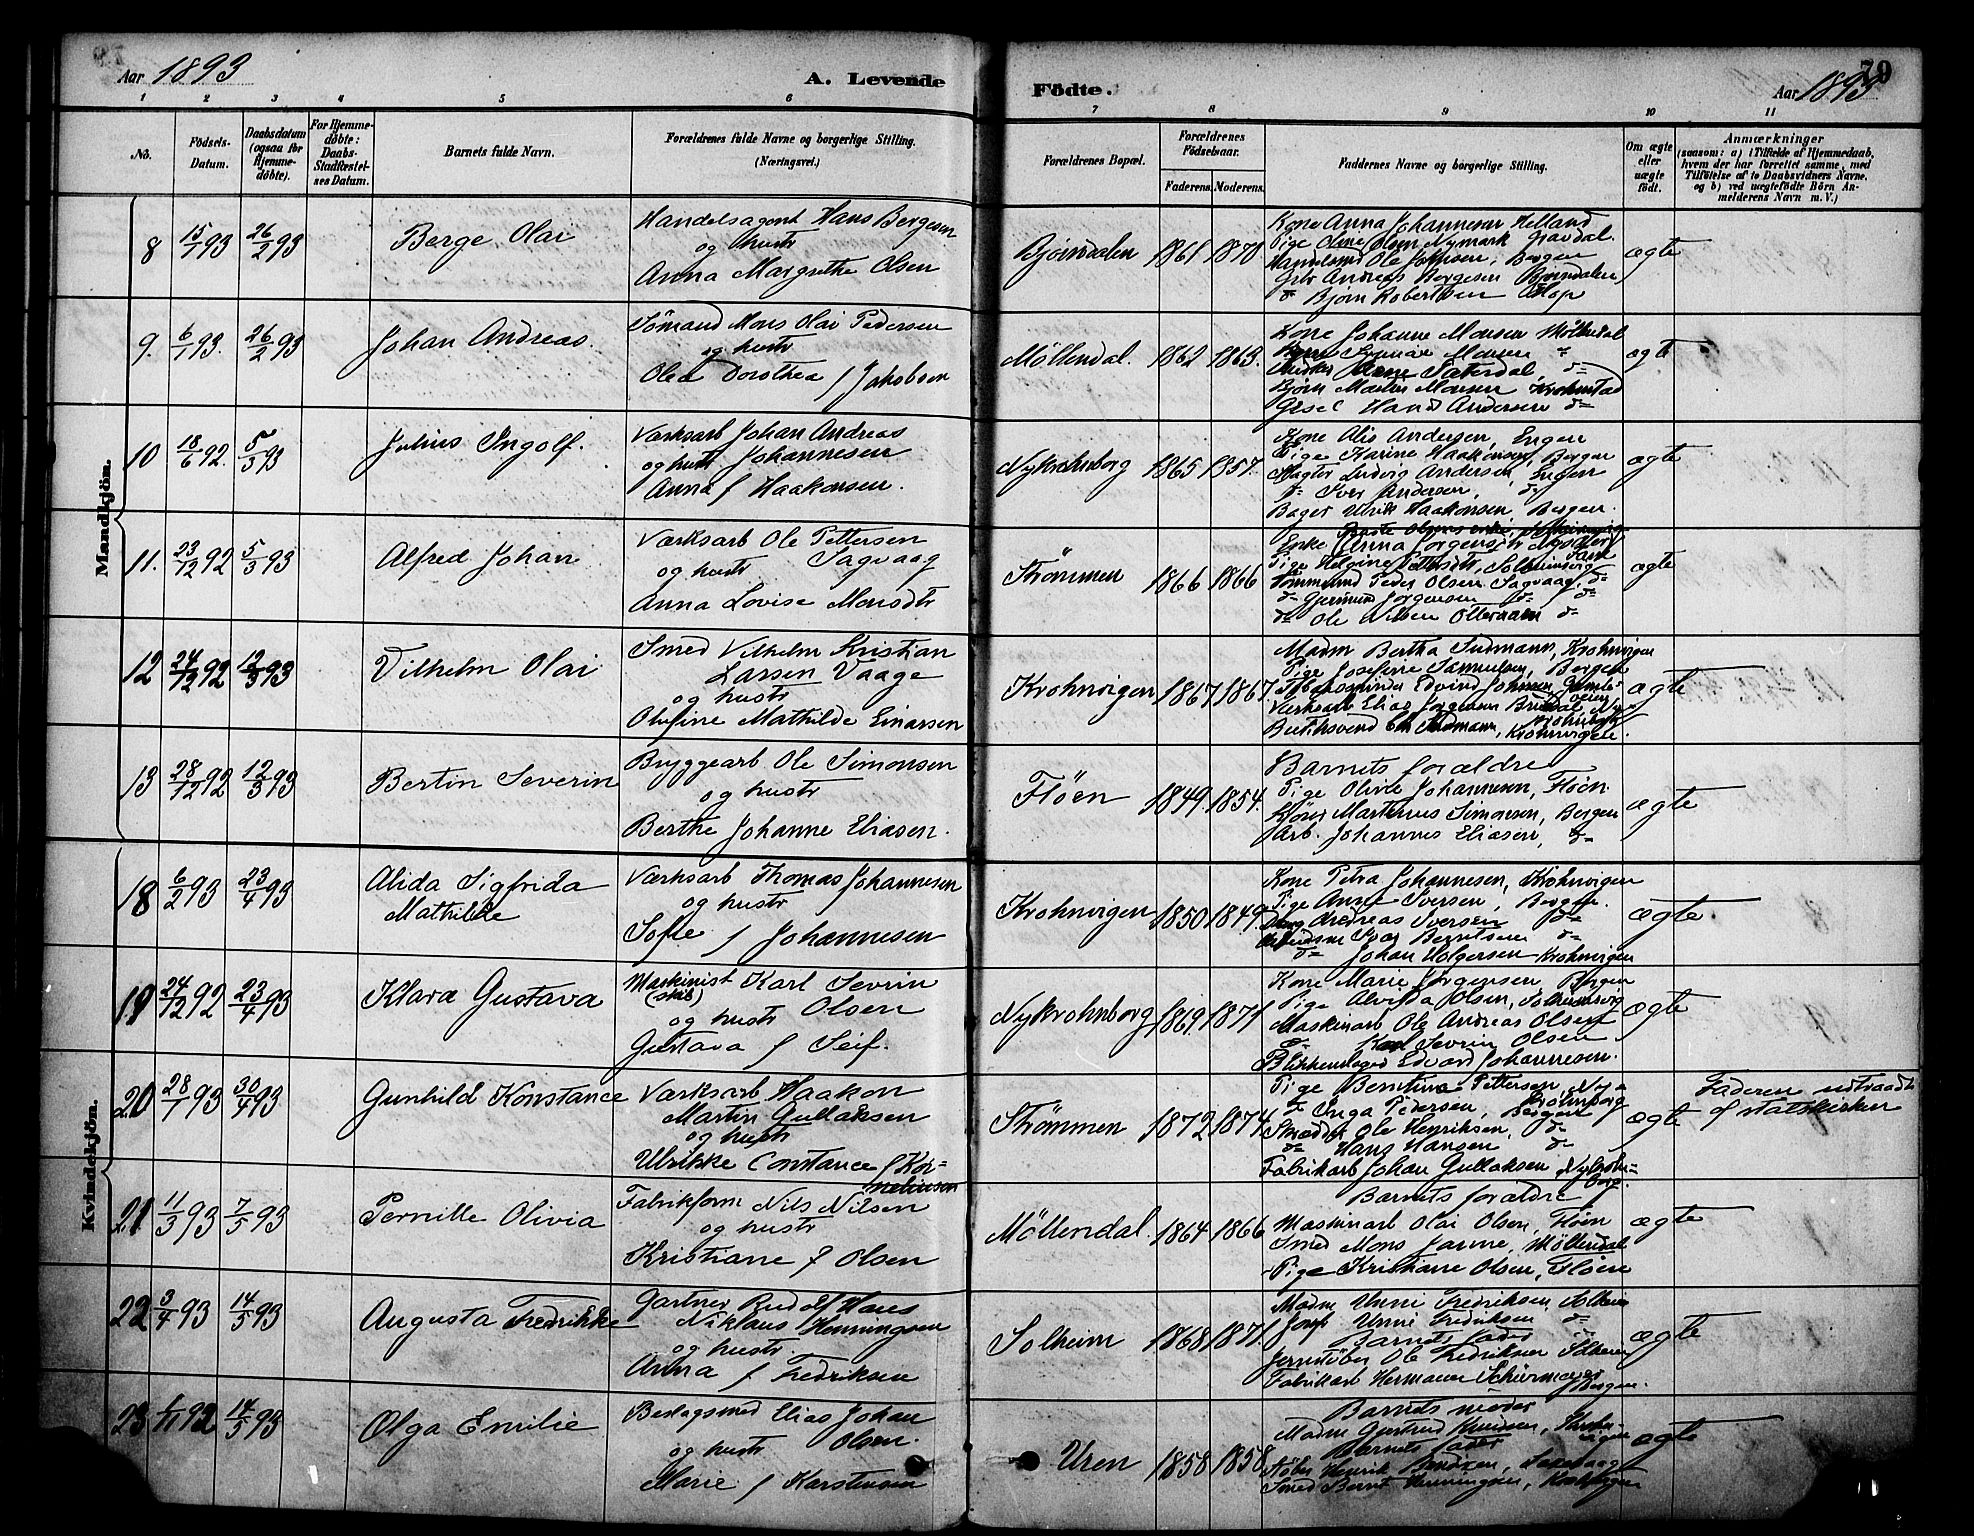 Aar 1893
A. Levende
Födte.
Aar 1893
79
1 2 3 4 5 6 7 8 9 10 11
No.
Födsels-Datum.
Daabsdatum (ogsaa for Hjemmedöbte).
For Hjemmedöbte: Daabs-Stadfæstelses Datum.
Barnets fulde Navn.
Forældrenes fulde Navne og borgerlige Stilling.
(Næringsvei.)
Forældrenes Bopæl.
Forældrenes Födselsaar.
Faderens. Moderens.
Faddernes Navne og borgerlige Stilling.
Om ægte eller uægte födt.
Anmærkninger
(saasom: a) i Tilfælde af Hjemmedaab,
hvem der har forrettet samme, med
Tilföielse af to Daabsvidners Navne,
og b) ved uægtefödte Börn An-
melderens Navn m. V.)
Mandkjön.
8 15/1 93 26/2 93 Berge Olai
Handelsagent Hans Bergesen
og hustr
Anna Margrethe Olsen
Bjørndalen 1861 1870
Kone Anna Johannesen Helland
Pige Oline Olsen Nymark Gravdal
Ole Johnsen, Bergen
Andreas Bergesen Bjørndalen
d= Bjørn Robertsen
ægte
9. 6/1 93. 26/2 93 Johan Andreas.
Sömand Mons Olai Pedersen
og hustr
Olea Dorothea f Jakobsen
Møllendal. 1862 1863.
Kone Johanne Monsen Møllendal
Monsen d=
d=
Bjørn Martin Monsen Krohnstad
Hans Andersen d=
ægte
10 18/6 92. 5/3 93 Julius Ingolf.
Værksarb Johan Andreas
og hustr Johannesen
Anna f Haakonsen.
Nykrohnborg 1865 1857.
Kone Alis Andersen, Engen
Pige Karine Haakonsen, Bergen
Ludvig Andersen, Engen
d= Iver Andersen, d=
Bager Ulrik Haakonsen Bergen.
ægte
11. 23/12 92 5/3 93 Alfred Johan
Værksarb Ole Pettersen
og hustr Sagvaag
Anna Lovise Monsdtr
Strømmen 1866 1866
Enke Anna Jørgensdtr
Pige Helvine Pettersdtr, Solheimsvig
Tømmermd Peder Olsen Sagvaag, d=
d= Jørgensen d= d=
d= Ole Nilsen d=
ægte
12 24/12 92 12/3 93 Vilhelm Olai
Smed Vilhelm Kristian
Larsen Vaage
og hustr
Olufine Mathilde Einarsen
Krohnvigen 1867 1867.
Madm Bertha Sudmann, Krohnvigen
Pige Josefine Samuelsen, Bergen
Edvind Johnsen,
Værksarb Elias Jørgensen
Sudmann, Krohnvigen.
ægte
13 28/12 92 12/3 93 Bertin Severin
Bryggearb Ole Simonsen
og hustr
Berthe Johanne Eliasen.
Fløen 1849. 1854.
Barnets forældre
Pige Olivie Johannesen, Fløen
Martinus Simonsen, Bergen
Arb. Johannes Eliasen, d=
ægte
Kvindekjön.
18 6/2 93 23/4 93 Alida Sigfrida
Mathilde
Værksarb Thomas Johannesen
og hustr
Sofie f Johannesen
Krohnvigen 1850 1849.
Kone Petra Johannesen, Krohnvigen
Pige Anne Iversen, Bergen.
Andreas Iversen d=
Berntsen d=
d= Johan Holgersen Krohnvigen
ægte.
19 24/12 92 23/4 93 Klara Gustava
Maskinist Karl Sevrin
(skib)
og hustr Olsen
Gustava f Seif.
Nykrohnborg 1869 1871
Kone Marie Jørgensen, Bergen
Pige Alvilda Olsen, Solheimsvig
Maskinarb Ole Andreas Olsen
d= Karl Sevrin Olsen
Blikkenslager Edvard Johannesen.
ægte
20 28/1 93 30/4 93 Gunhild Konstance
Værksarb Haakon
Martin Gullaksen
og hustr
Ulrikke Constance f Kor=
neliusen
Strømmen 1872 1874
Pige Berntine Pettersen Ny=
krohnborg
d= Inga Pedersen, Bergen
Smeddr Ole Henriksen, d=
d= Hans Hansen d=
Fabrikarb Johan Gullaksen Nykrohn=
borg.
ægte
Faderen udtraadt
af statskirken
21 11/3 93 7/5 93 Pernille Olivia
Fabrikform Nils Nilsen
og hustr
Kristiane f Olsen
Möllendal. 1864 1866
Barnets forældre
Maskinarb Olai Olsen, Fløen
Smed Mons Janne, Møllendal
Pige Kristiane Olsen, Fløen
ægte
22 3/4 93 14/5 93 Augusta Fredrikke
Gartner Rudolf Hans
Niklaus Henningsen
og hustr.
Anna f Fredriksen
Solheim 1868 1871
Madm Unni Fredriksen Solheim
Jomf Unni Fredriksen d=
Barnets fader
Jernstøber Ole Fredriksen Solheim
Fabrikarb Hermann Schürmann
Bergen.
ægte
23 1/11 92 14/5 93 Olga Emilie
Beslagsmed Elias Johan
og hustr Olsen.
Marie f Karstensen
Uren 1858 1858
Barnets moder
Madm Gjertrud Knudsen,
Barnets fader
Støber Henrik
Smed Bernt Henningsen,
ægte